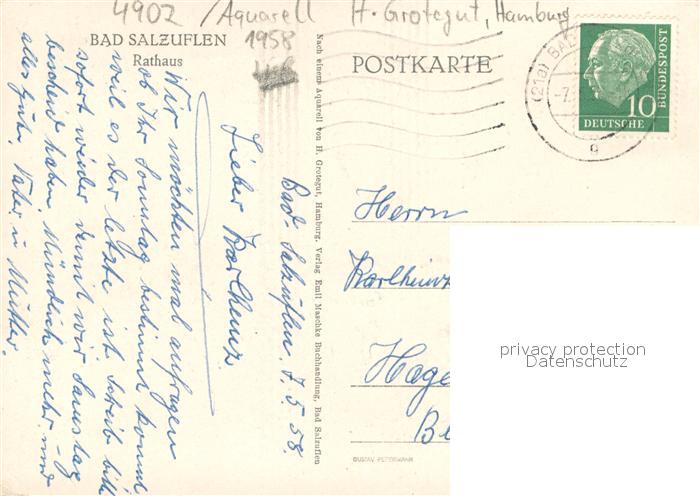 4902 /Aquarell H. Grotegut, Hamburg
1958
BAD SALZUFLEN
Rathaus
POSTKARTE
Nach einem Aquarell von H. Grotegut, Hamburg. Verlag Emil Maschke Buchhandlung, Bad Salzuflen
(21a) BAD
-7.
g
10
DEUTSCHE
BUNDESPOST
Bad Salzuflen, 7.5.58.
Lieber Karlheinz.
Wir möchten mal anfragen
ob Ihr Sonntag bestimmt kommt
weil es der letzte ist. Schreib bitte
sofort wieder damit wir Samstag
bescheid haben. Mündlich mehr und
alles Gute, Vater u Mutter.
Herrn
Karlheinz
Hage
Be
GUSTAV PETERMANN
privacy protection
Datenschutz